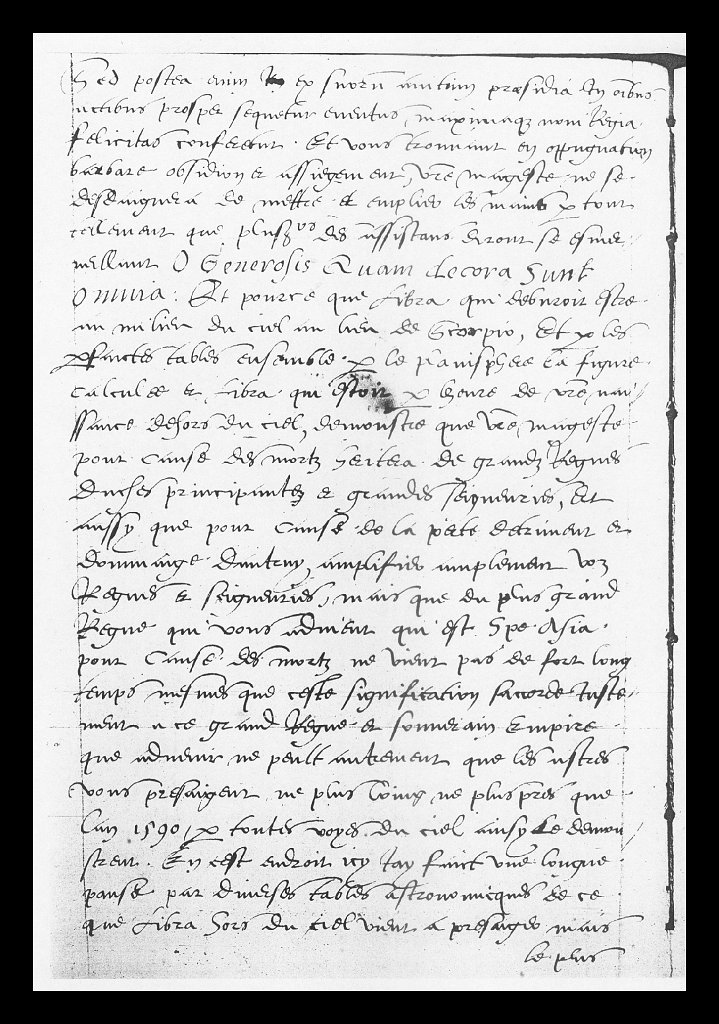 Sed postea enim ex suorum autem præsidia in oibus
actibus prosper sequetur eventus, maximaqz nom Regia
felicitas conferetur. Et vous trouvant en oppugnation
barbare obsidion et assiegement, vre mageste ne se
desdaignera de mettre et emplier les mains p tout
tellement que plusrs des assistans diront se esmer
veillant O Generosis Quam decora Sunt
Omnia. Et pource que Libra qui debvroit estre
au milieu du ciel au lieu de Scorpio, Et p les
pfaictes tables ensemble p le Planisphere la figure
calculee et Libra qui estoit p heure de vre nai/
ssance dehors du ciel, demonstre que vre mageste
pour cause des mortz heritera de grandz Regnes
Duches principaultez et grandes seigneuries, Et
aussy que pour cause de la perte detriment et
dommaige daultruy, amplifier amplement voz
Regnes et seigneuries, mais que du plus grand
Regne qui vous advient qui est Spe Asia
pour cause des mortz ne vient pas de fort long
temps mesmes que ceste signification saccorde juste-
ment a ce grand Regne et souverain Empire
que advenir ne peult autrement que les astres
vous presaigent ne plus loing ne plus pres que
lan 1590, p toutes voyes du ciel ainsy le demon/
strent. En cest endroit icy jay faict une longue
pause par diverses tables astronomicques de ce
que Libra hors du ciel vient a presaiger mais
le plus